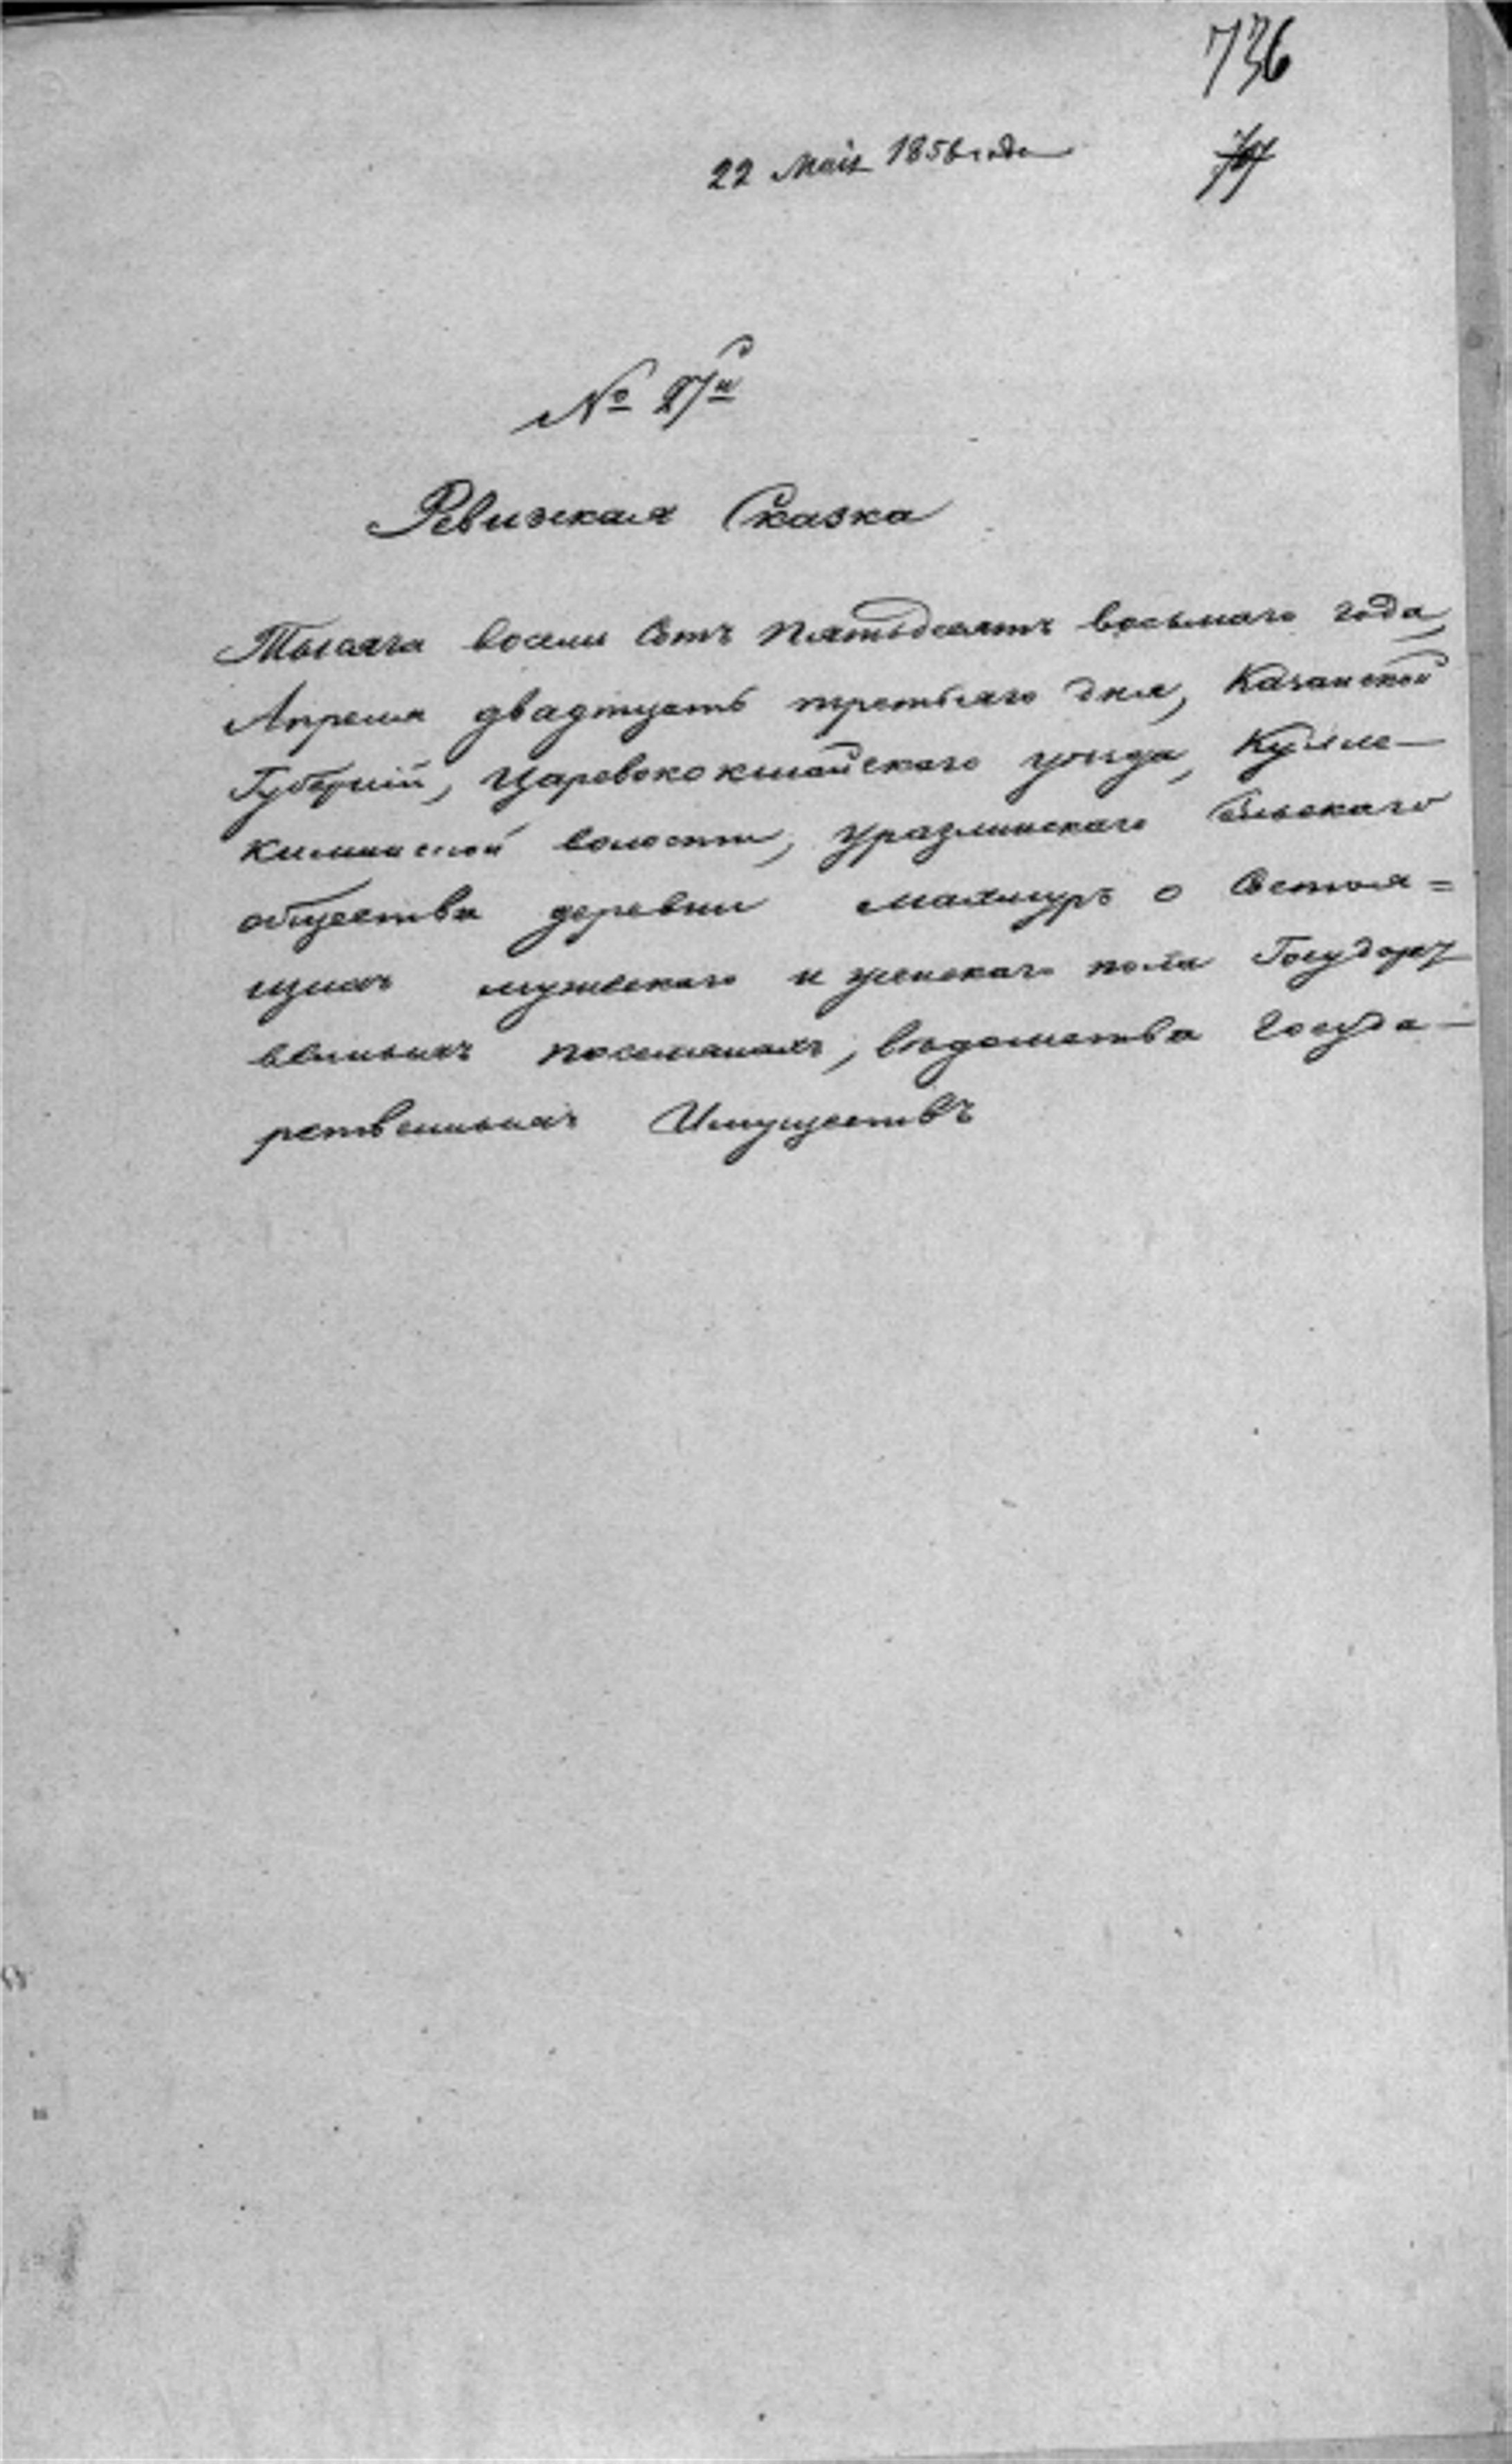 736
22 Маія 1858 года
№ 27й
Ревижская Сказка
Тысяча восем Сотъ пятьдесятъ восьмаго года,
Апреля двадтцать третьяго дня, Казанской
Губерніи, Царевококшайскаго уѣзда, Кулле-
киминской волости, Уразлинскаго Сельскаго
общества деревни Малмуръ о Состоя=
щихъ мужескаго и женскаго пола Государст
венныхъ поселянахъ, вѣдомства Госуда-
рственныхъ Имуществъ